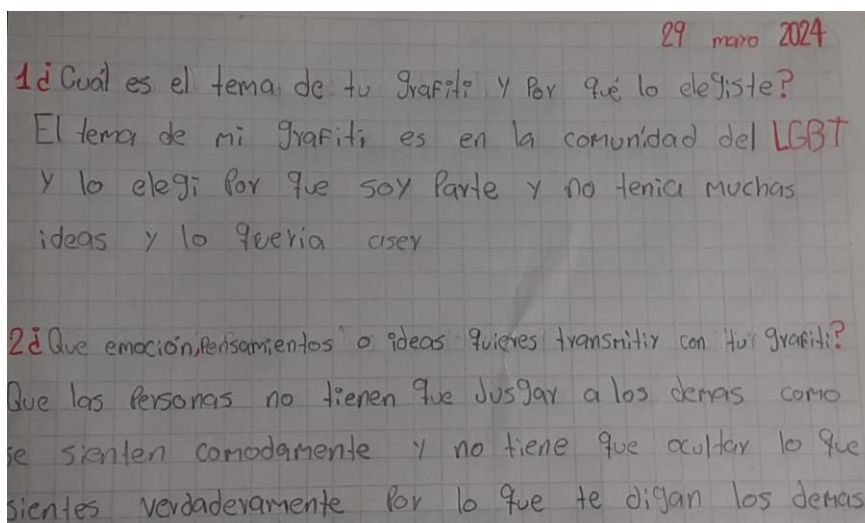 29 mayo 2024
1¿Cuál es el tema de tu grafiti y Por qué lo elegiste?
El tema de mi grafiti es en la comunidad del LGBT
y lo elegi Por que soy Parte y no tenia muchas
ideas y lo queria aser
2¿Que emoción,Pensamientos o ideas quieres transmitir con tu grafiti?
Que las Personas no tienen que Jusgar a los demas como
se sienten comodamente y no tiene que ocultar lo que
sientes verdaderamente Por lo que te digan los demas